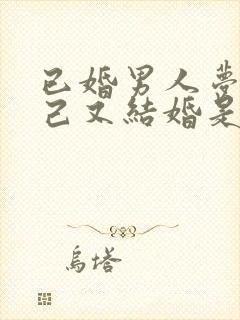 已婚男人夢
己又結婚是
烏塔